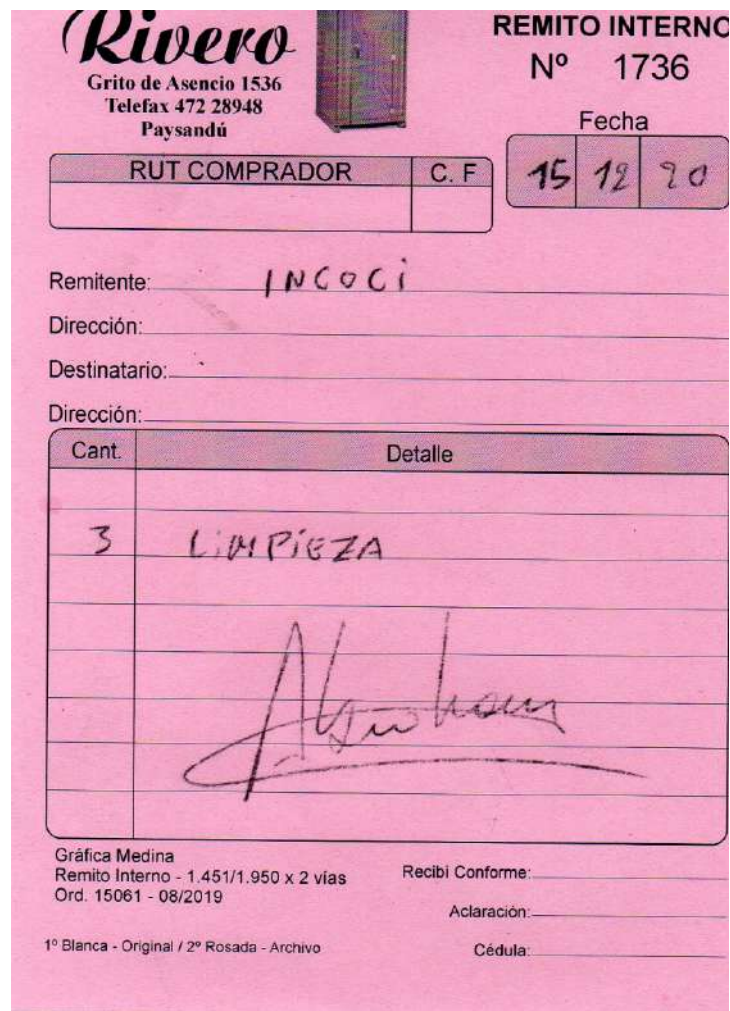 Rivero
Grito de Asencio 1536
Telefax 472 28948
Paysandú
REMITO INTERNO
Nº 1736
Fecha
15 12 20
RUT COMPRADOR C. F
Remitente: INCOCI
Dirección:
Destinatario:
Dirección:
Cant. Detalle
3 LIMPIEZA
Gráfica Medina
Remito Interno - 1.451/1.950 x 2 vías
Ord. 15061 - 08/2019
1º Blanca - Original / 2º Rosada - Archivo
Recibi Conforme:
Aclaración:
Cédula: